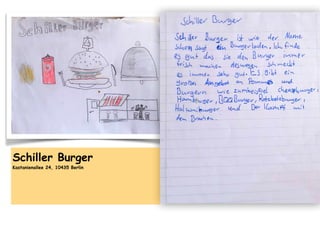 Schiller Burger
Schiller Burger
Schiller Burger ist wie der Name
schon sagt ein Burgerladen. Ich finde
es gut das sie den Burger immer
frisch machen deswegen schmeckt
es immer sehr gut. Es Gibt ein
großes Angebot an Pommes und
Burgern wie zum Beispiel cheeseburger,
Hamburger, BBQ Burger,
Halloumiburger und Der Kampf mit
dem Drachen.
Schiller Burger
Kastanienallee 24, 10435 Berlin